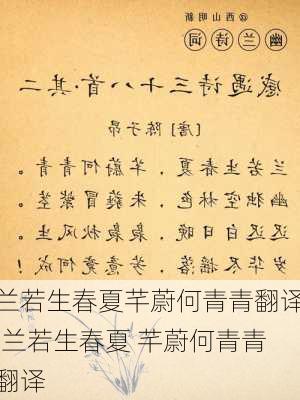 @西山明新
幽兰诗词
感遇诗三十八首·其二
[唐] 陈子昂
兰若生春夏，芊蔚何青青。
幽独空林色，朱蕤冒紫茎。
迟迟白日晚，袅袅秋风生。
岁华尽摇落，芳意竟何成！
兰若生春夏芊蔚何青青翻译
兰若生春夏 芊蔚何青青
翻译